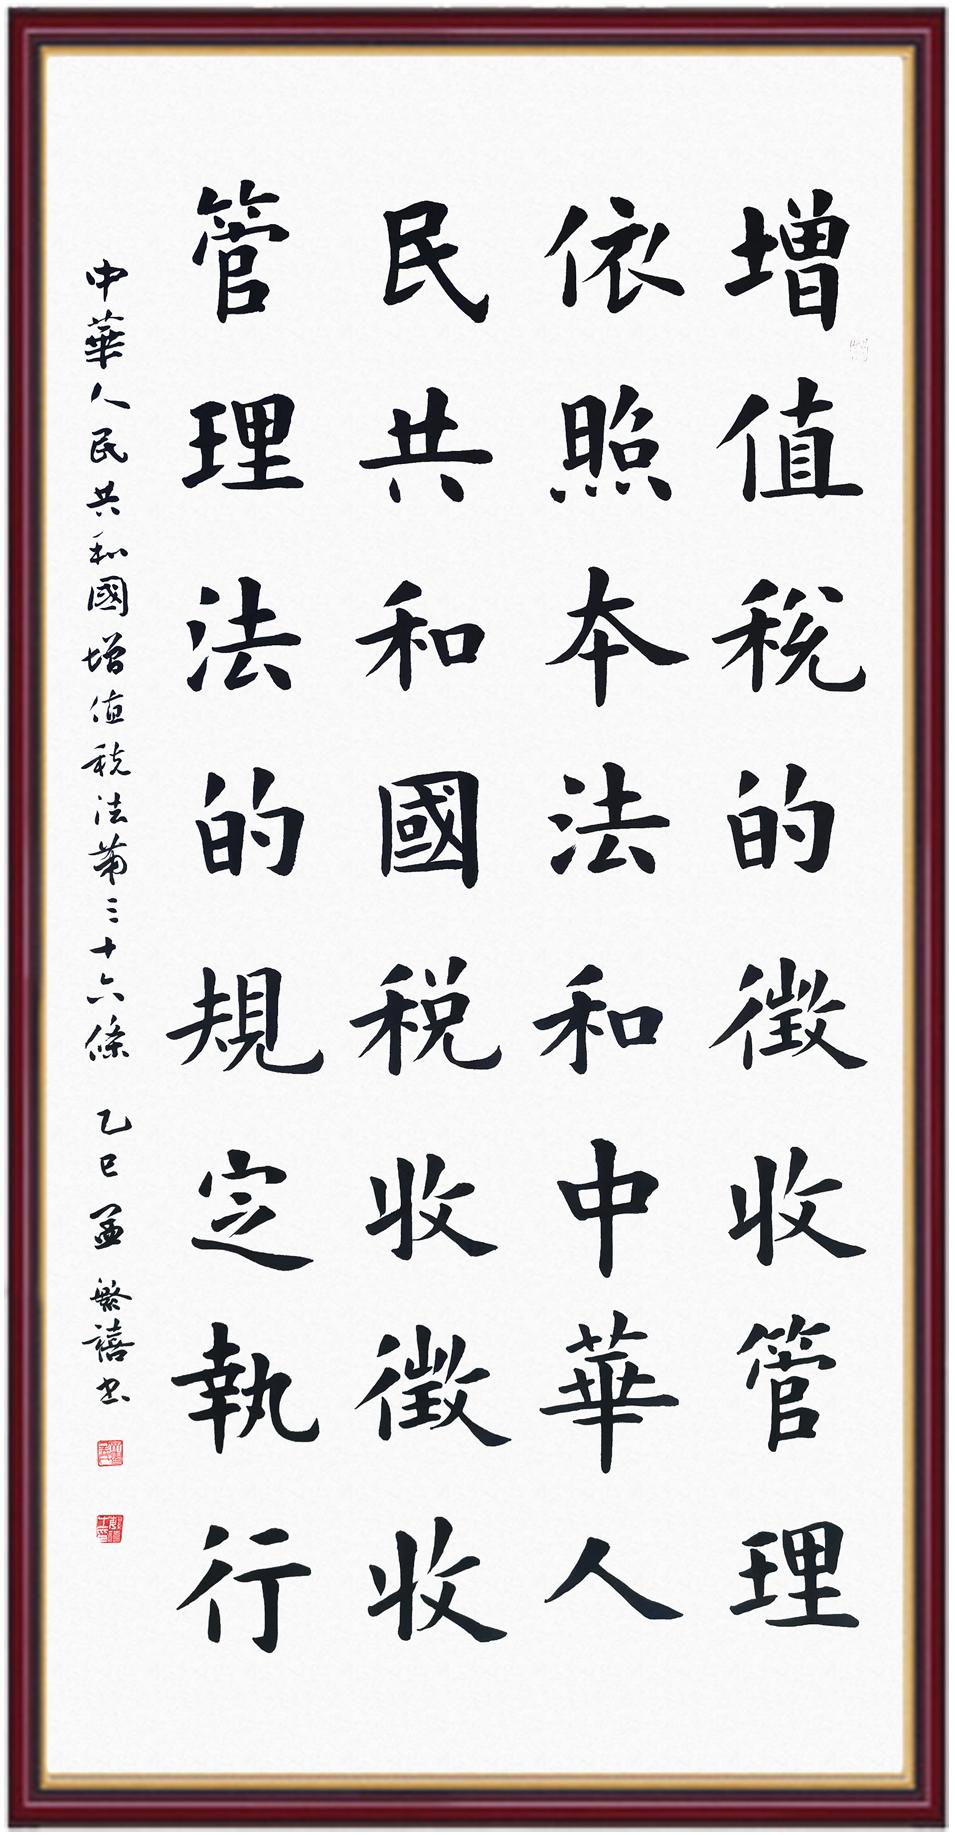 增值税的徵收管理
依照本法和中華人
民共和國税收徵收
管理法的規定執行
中華人民共和國增值税法第三十六條 乙巳孟 繁禧书